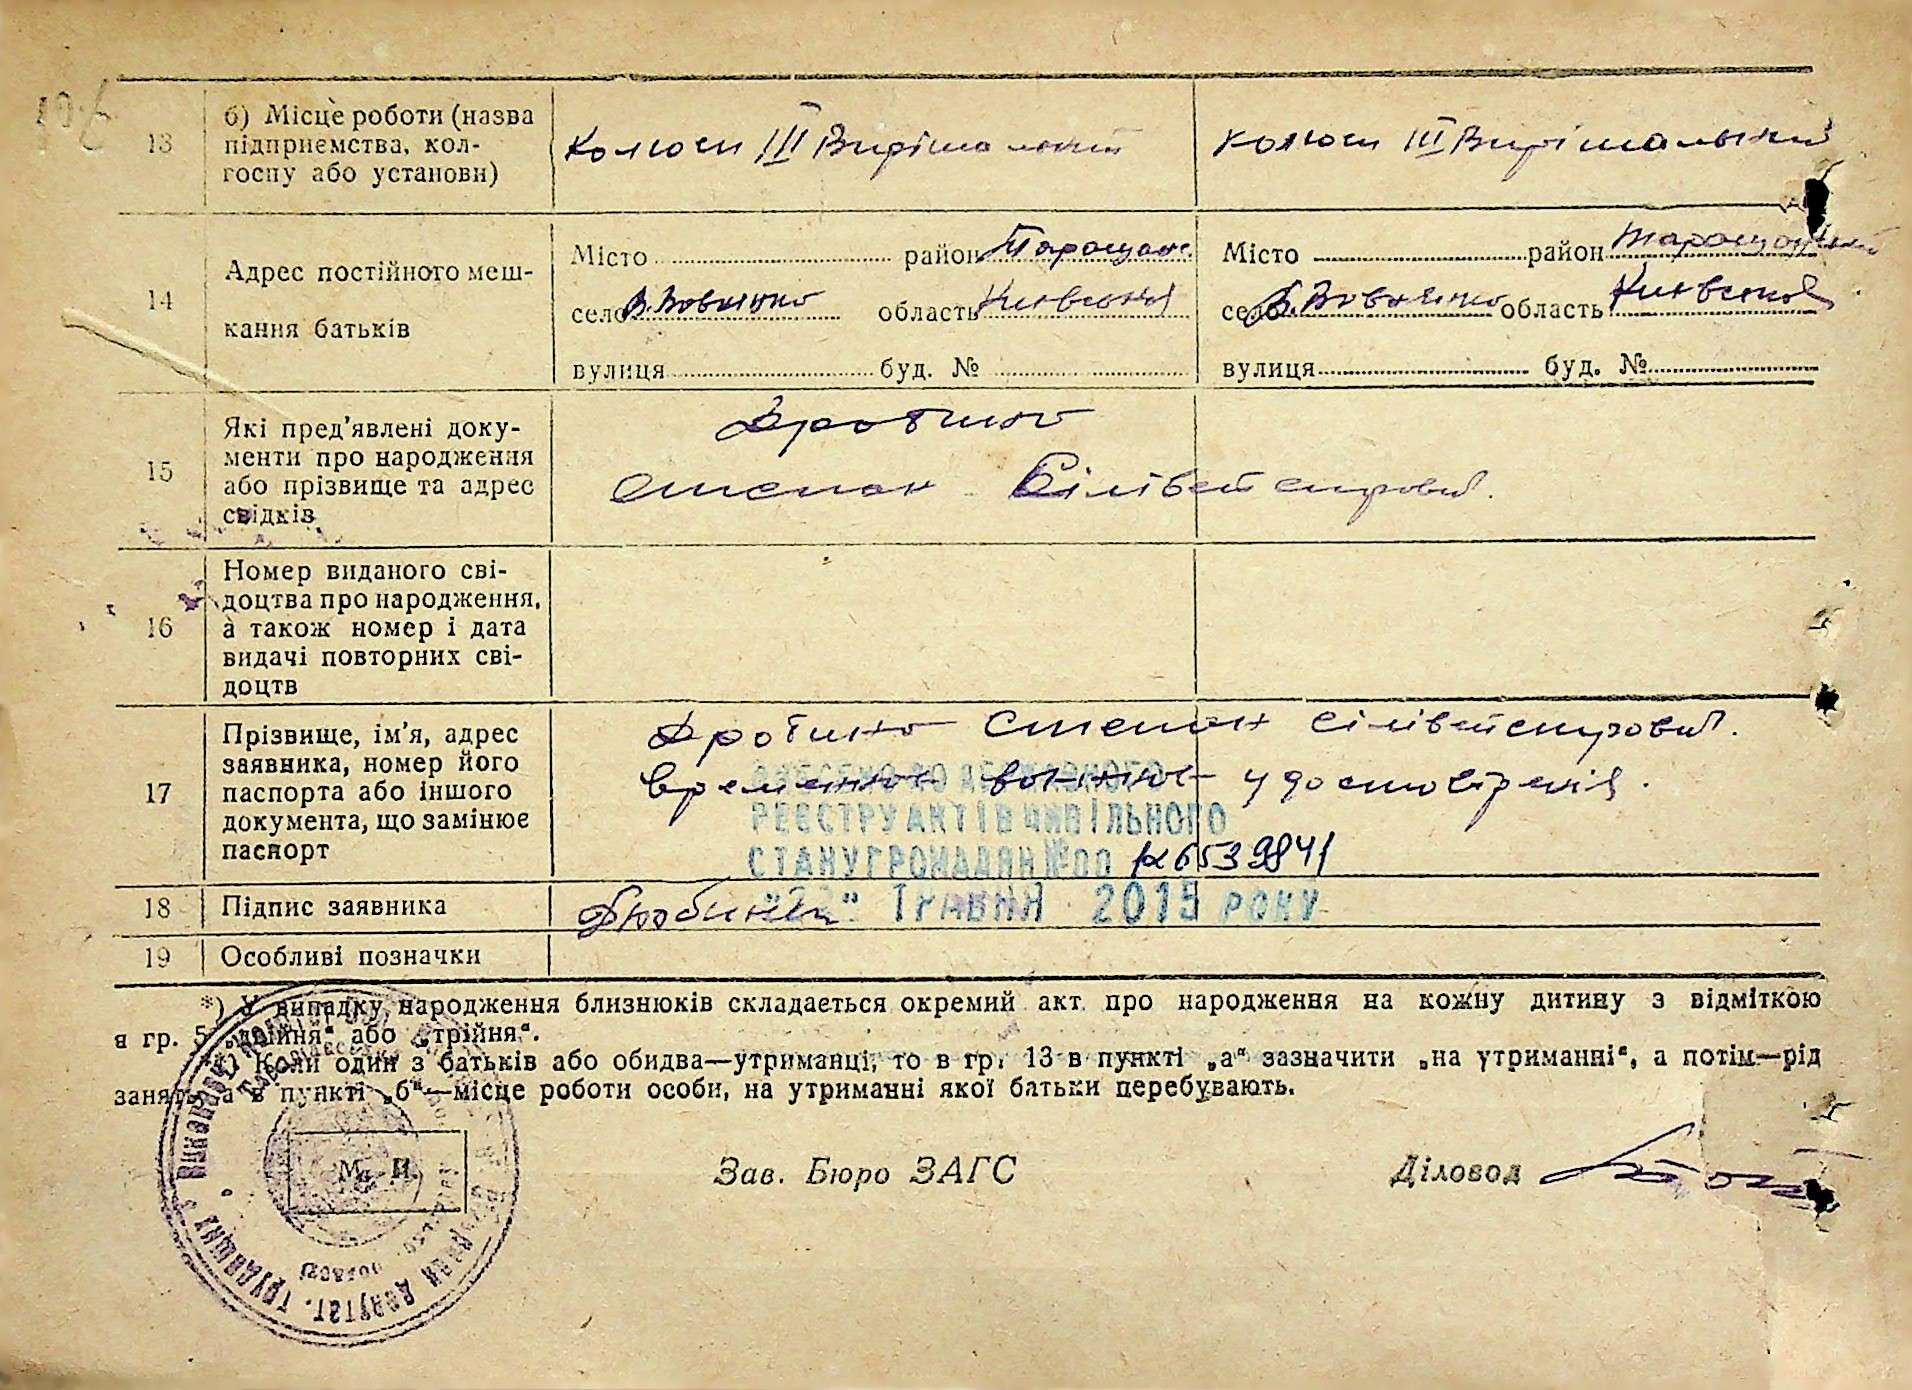 13
б) Місце роботи (назва
підприємства, кол-
госпу або установи)
III Вирішальний
III Вирішальний
14
Адрес постійного меш-
кання батьків
Місто район Таращан.
село В. Вовнянко область Київської
вулиця буд. №
Місто район Таращанський
село В. Вовнянко область Київської
вулиця буд. №
15
Які пред’явлені доку-
менти про народження
або прізвище та адрес
свідків
Дробино
Степан Сілівейстрович.
16
Номер виданого сві-
доцтва про народження,
а також номер і дата
видачі повторних сві-
доцтв
17
Прізвище, ім’я, адрес
заявника, номер його
паспорта або іншого
документа, що замінює
паспорт
Дробино Степан Сілівейстрович.
временное военное удостоверенія.
ВНЕСЕНО ДО ДЕРЖАВНОГО
РЕЄСТРУ АКТІВ ЦИВІЛЬНОГО
СТАНУ ГРОМАДЯН №00
18
Підпис заявника
ТРАВНЯ 2015 РОКУ
19
Особливі позначки
*) У випадку народження близнюків складається окремий акт про народження на кожну дитину з відміткою
в гр. 5 „двійня“ або „трійня“.
**) Коли один з батьків або обидва—утриманці, то в гр. 13 в пункті „а“ зазначити „на утриманні“, а потім—рід
занять, а в пункті „б“—місце роботи особи, на утриманні якої батьки перебувають.
М. П.
Зав. Бюро ЗАГС
Діловод